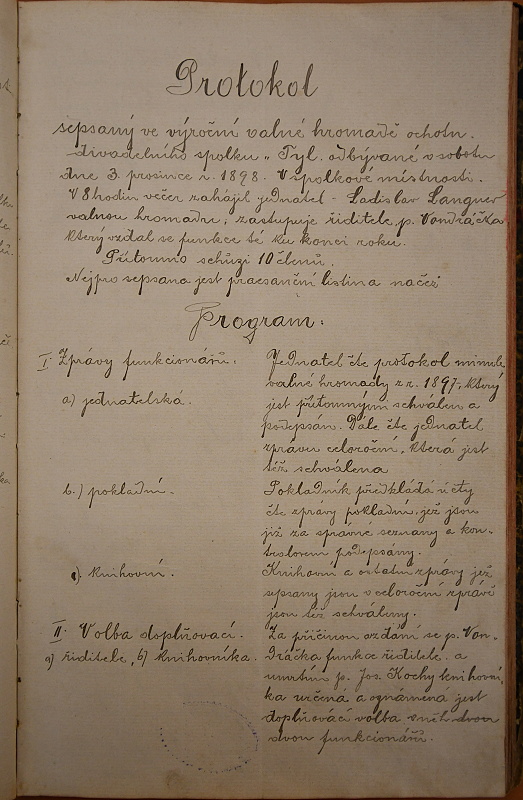 Protokol
sepsaný ve výroční valné hromadě ochotn.
divadelního spolku „Tyl. odbývané v sobotu
dne 3. prosince r. 1898. V spolkové místnosti.
V 8 hodin večer zahájil jednatel - Ladislav Langner
valnou hromadu; zastupuje ředitele p. Vondráčka
který vzdal se funkce té ku konci roku.
Přítomno schůzi 10 členů.
Nejpro sepsana jest praesanční listina načež
Program:
I. Zprávy funkcionářů.
a) jednatelská.
Jednatel čte protokol minulé
valné hromady z r. 1897, který
jest přítomnými schválen a
podepsán. Dále čte jednatel
zprávu celoroční, která jest
též schválena
b.) pokladní.
Pokladník předkládá účty
čte zprávy pokladní, jež jsou
již za správné seznany a kon-
trolorem podepsány.
c). knihovní.
Knihovní a ostatní zprávy jež
sepsany jsou v celoroční zprávě
jsou též schváleny.
II. Volba doplňovací.
a) ředitele, b) knihovníka.
Za příčinou vzdání se p. Von-
dráčka funkce ředitele. a
umrtím p. Jos. Kochy knihovní-
ka určená a oznámena jest
doplňovací volba dvou
dvou funkcionářů.